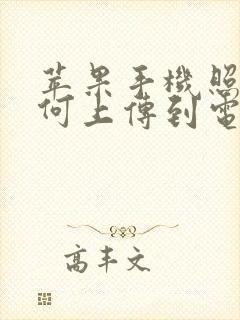 苹果手機照
何上傳到電
高丰文